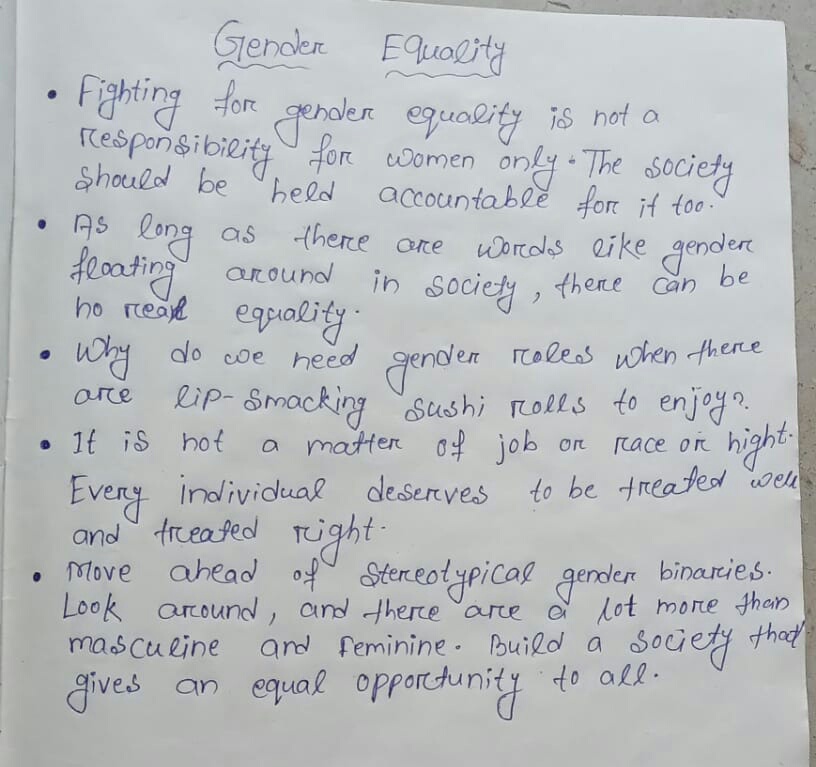 Gender Equality
• Fighting for gender equality is not a
responsibility for women only. The society
should be held accountable for it too.
• As long as there are words like gender
floating around in society, there can be
no real equality.
• Why do we need gender roles when there
are lip-smacking sushi rolls to enjoy?
• It is not a matter of job or race or hight.
Every individual deserves to be treated well
and treated right.
• Move ahead of stereotypical gender binaries.
Look around, and there are a lot more than
masculine and feminine. Build a society that
gives an equal opportunity to all.